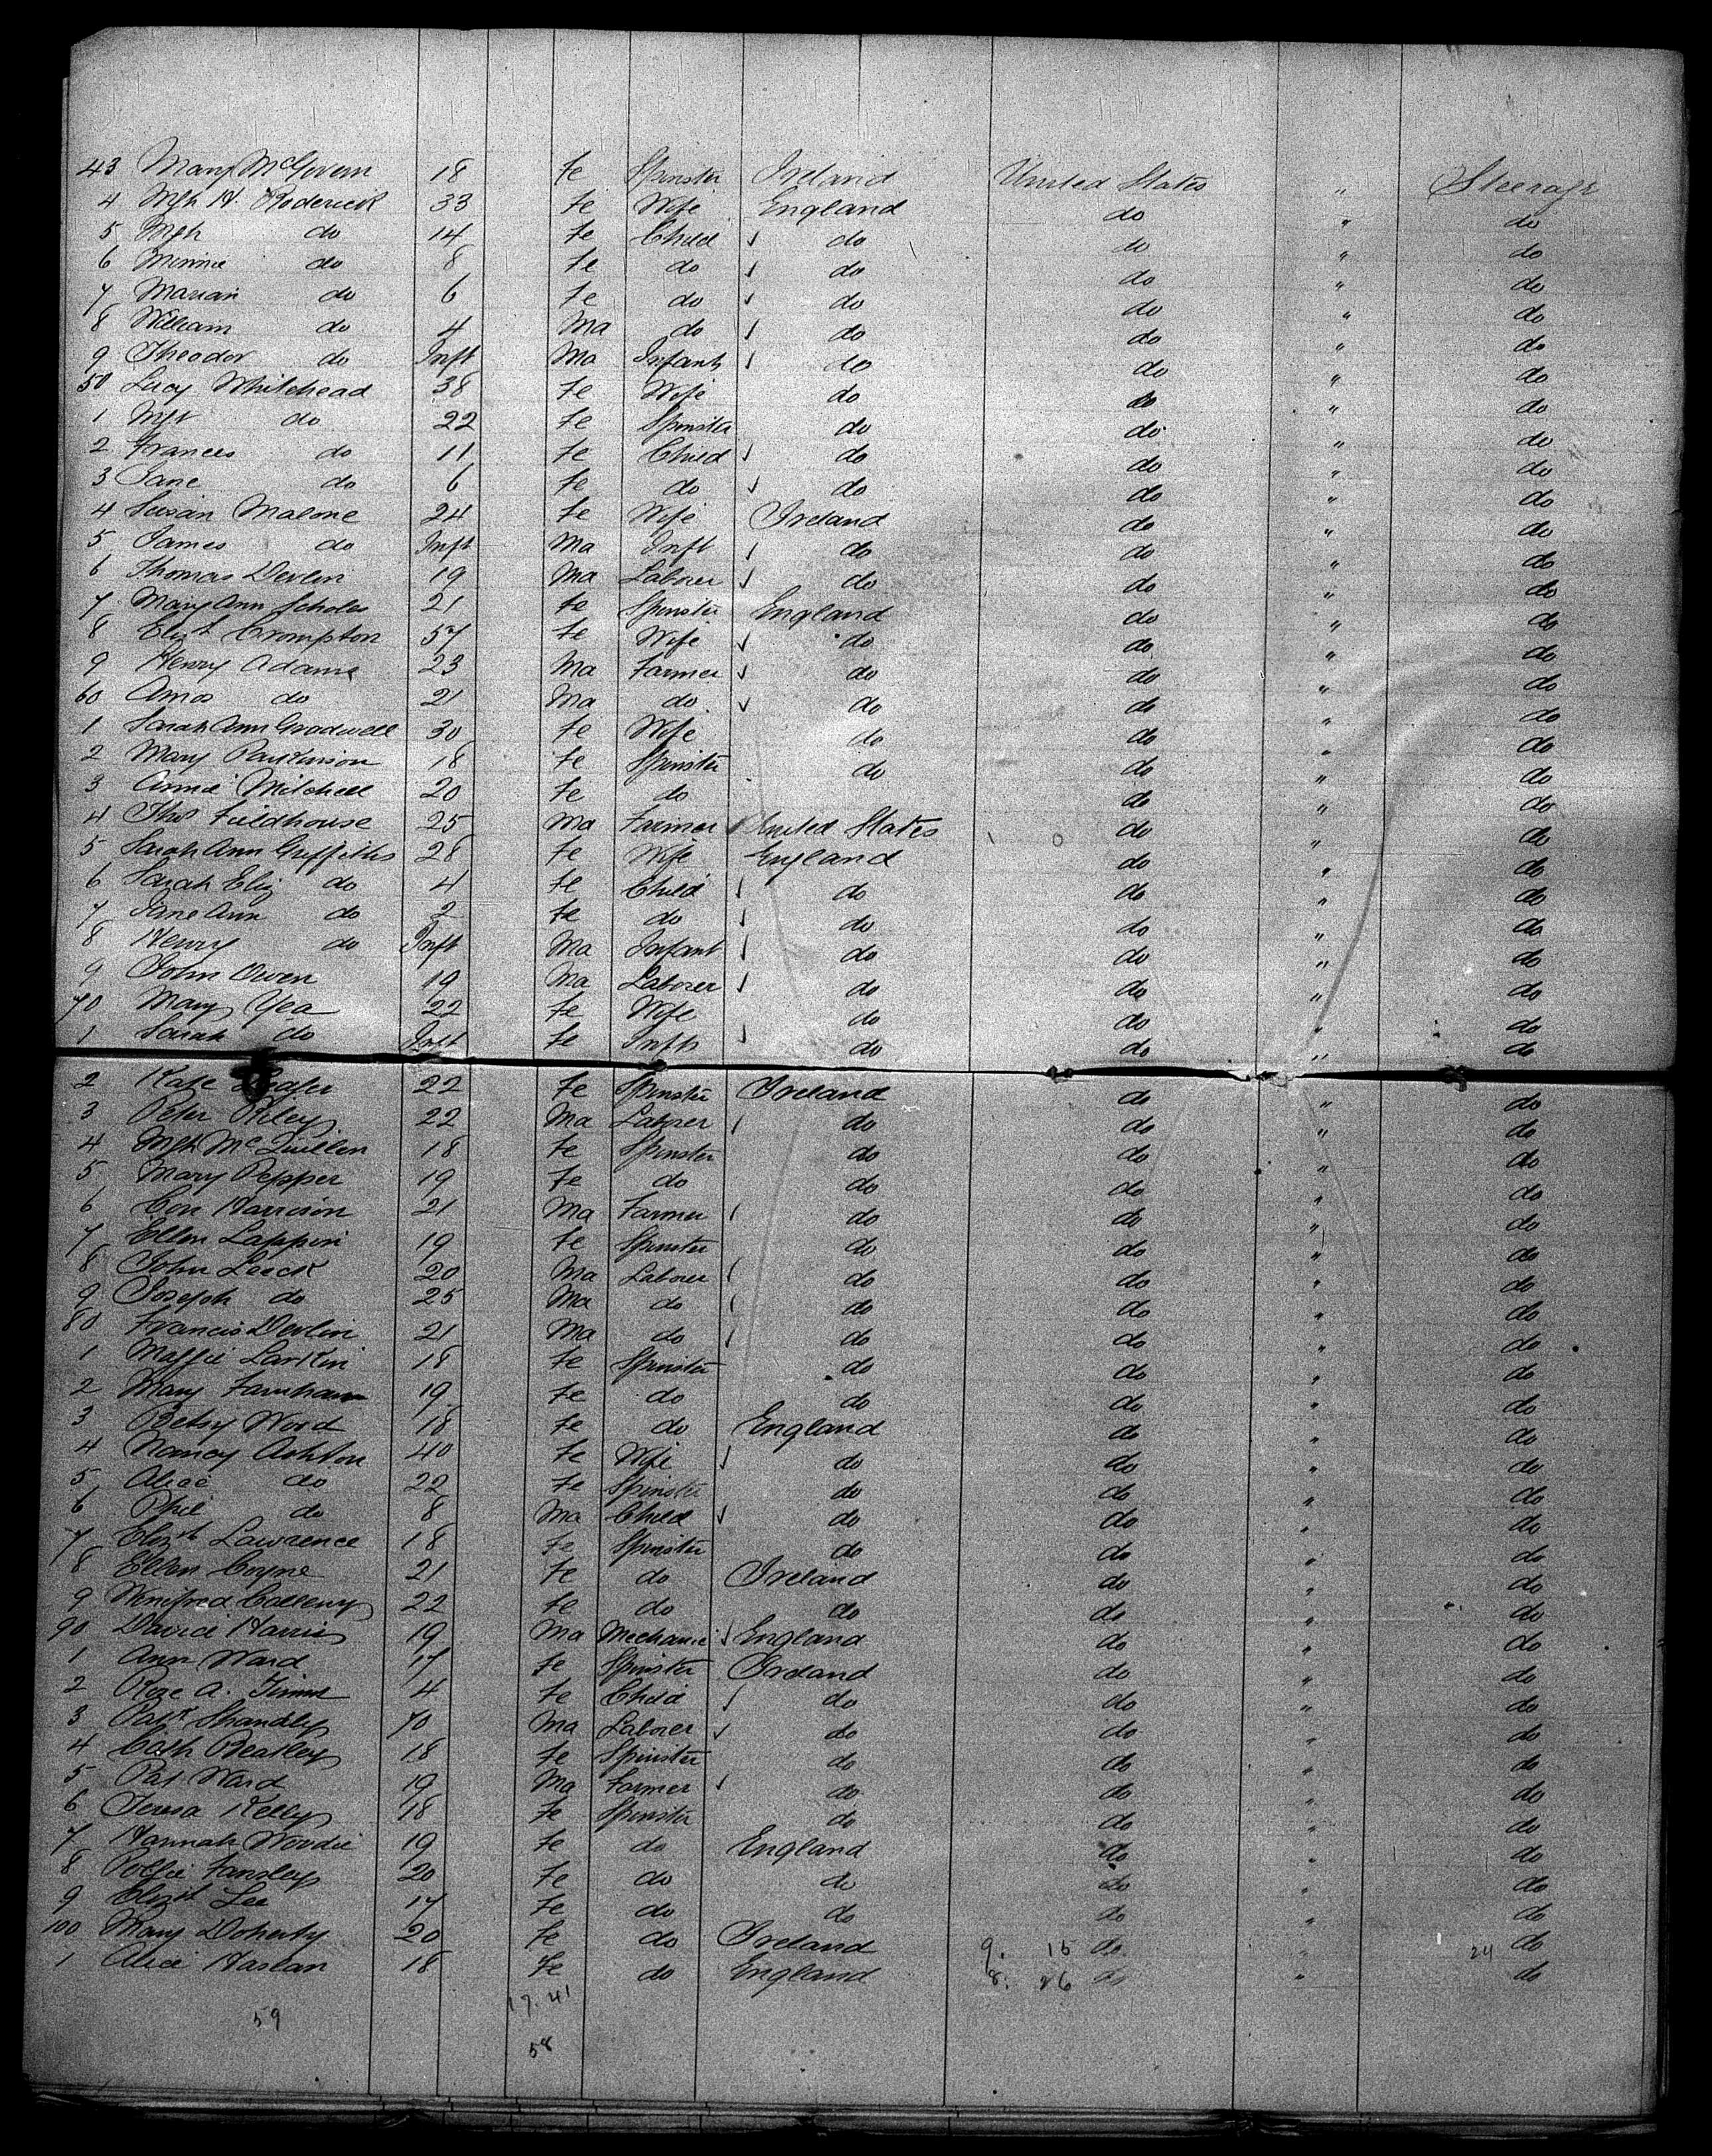 43 Mary McGovern 18 Fe Spinster Ireland United States " Steerage
4 Mgh H. Roderick 33 Fe Wife England do " do
5 Mgh do 14 Fe Child do do " do
6 Minnie do 8 Fe do do do " do
7 Marian do 6 Fe do do do " do
8 William do 4 Ma do do do " do
9 Theodor do Inft Ma Infant do do " do
50 Lucy Whitehead 38 Fe Wife do do " do
1 Mgt do 22 Fe Spinster do do " do
2 Frances do 11 Fe Child do do " do
3 Jane do 6 Fe do do do " do
4 Susan Malone 24 Fe Wife Ireland do " do
5 James do Inft Ma Inft do do " do
6 Thomas Devlin 19 Ma Laborer do do " do
7 Mary Ann Scholes 21 Fe Spinster England do " do
8 Elizth Crompton 57 Fe Wife do do " do
9 Henry Adams 23 Ma Farmer do do " do
60 Amos do 21 Ma do do do " do
1 Sarah Ann Gradwell 30 Fe Wife do do " do
2 Mary Parkinson 18 Fe Spinster do do " do
3 Annie Mitchell 20 Fe do do " do
4 Thos Fieldhouse 25 Ma Farmer United States do " do
5 Sarah Ann Griffiths 28 Fe Wife England do " do
6 Sarah Eliz do 4 Fe Child do do " do
7 Jane Ann do 2 Fe do do do " do
8 Henry do Inft Ma Infant do do " do
9 John Owen 19 Ma Laborer do do " do
70 Mary Yea 22 Fe Wife do do " do
1 Sarah do Inft Fe Inft do do " do
2 Kate 22 Fe Spinster Ireland do " do
3 Peter Riley 22 Ma Laborer do do " do
4 Mgh McQuillen 18 Fe Spinster do do " do
5 Mary Pepper 19 Fe do do do " do
6 Con Harrison 21 Ma Farmer do do " do
7 Ellen Lappin 19 Fe Spinster do do " do
8 John Leeck 20 Ma Laborer do do " do
9 Joseph do 25 Ma do do do " do
80 Francis Devlin 21 Ma do do do " do
1 Maggie Larkin 18 Fe Spinster do do " do
2 Mary Farnham 19 Fe do do do " do
3 Betsy Wood 18 Fe do England do " do
4 Nancy Ashton 40 Fe Wife do do " do
5 Alice do 22 Fe Spinster do do " do
6 Phil do 8 Ma Child do do " do
7 Elizth Lawrence 18 Fe Spinster do do " do
8 Ellen Coyne 21 Fe do Ireland do " do
9 Winifred Calleny 22 Fe do do do " do
90 David Harris 19 Ma Mechanic England do " do
1 Ann Ward 17 Fe Spinster Ireland do " do
2 Rose A. 4 Fe Child do do " do
3 Patk Shandley 70 Ma Laborer do do " do
4 Cath Beatley 18 Fe Spinster do do " do
5 Pat Ward 19 Ma Farmer do do " do
6 Teresa Kelly 18 Fe Spinster do do " do
7 Hannah Woodie 19 Fe do England do " do
8 Pollie Fansley 20 Fe do do do " do
9 Elizth Lee 17 Fe do do do " do
100 Mary Doherty 20 Fe do Ireland 9. 15 do " 24 do
1 Alice Haslan 18 Fe do England 8. 26 do " do
17. 41
59
58